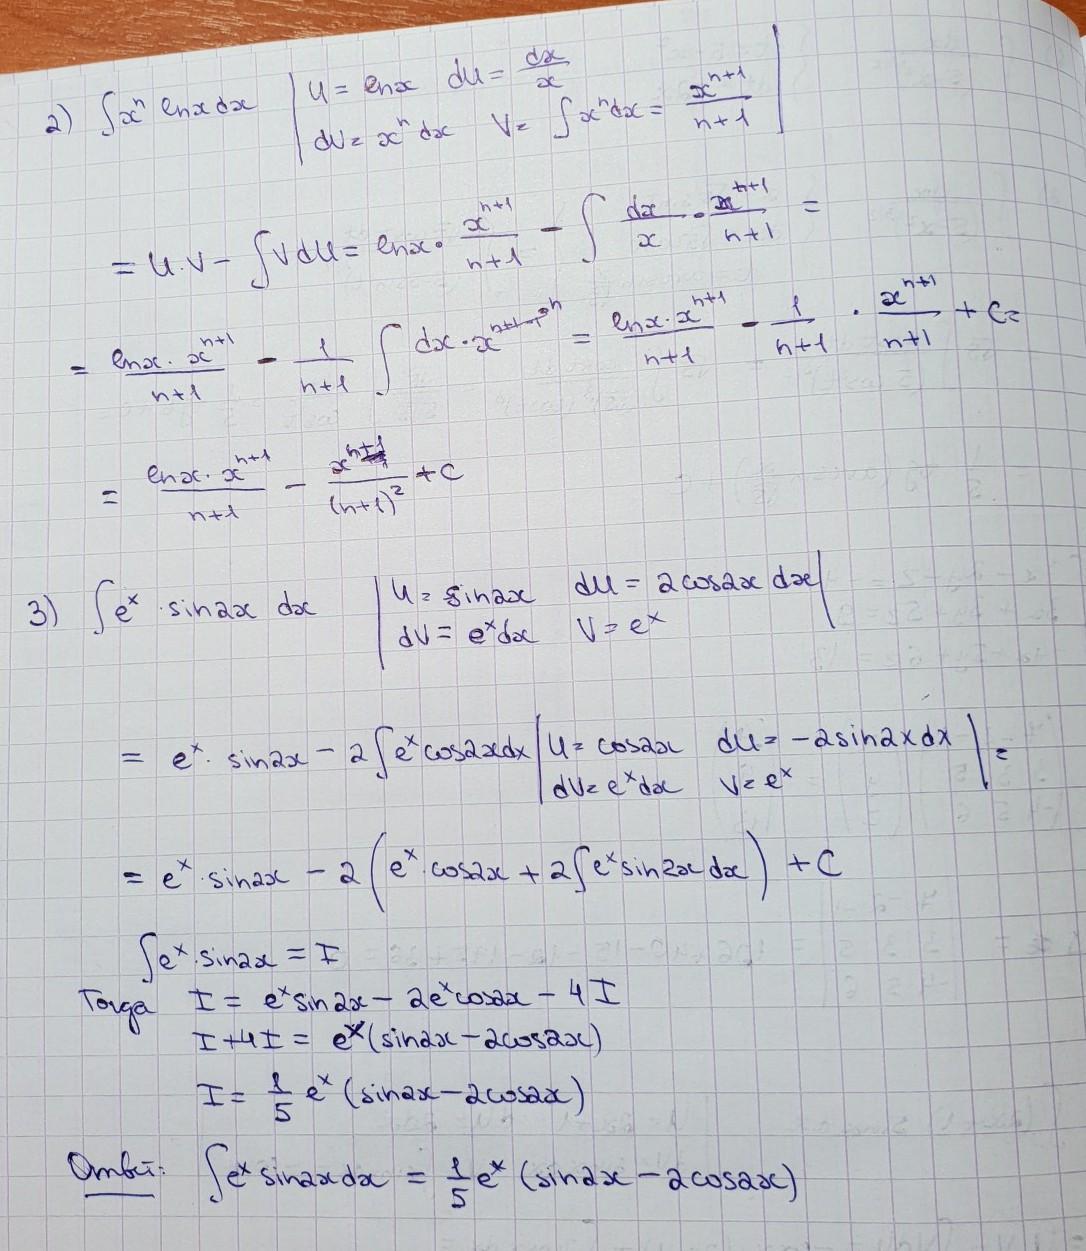 2) ∫xⁿ lnx dx | u = lnx du = dx/x
dv = xⁿ dx v = ∫xⁿdx = xⁿ⁺¹/(n+1) |
= u·v − ∫vdu = lnx · xⁿ⁺¹/(n+1) − ∫ dx/x · xⁿ⁺¹/(n+1) =
= lnx · xⁿ⁺¹/(n+1) − 1/(n+1) ∫ dx · xⁿ = lnx · xⁿ⁺¹/(n+1) − 1/(n+1) · xⁿ⁺¹/(n+1) + C =
= lnx · xⁿ⁺¹/(n+1) − xⁿ⁺¹/(n+1)² + C
3) ∫eˣ · sin2x dx | u = sin2x du = 2cos2x dx |
dv = eˣdx v = eˣ
= eˣ · sin2x − 2∫eˣcos2xdx | u = cos2x du = −2sin2xdx | =
dv = eˣdx v = eˣ
= eˣ · sin2x − 2(eˣ · cos2x + 2∫eˣsin2xdx) + C
∫eˣ · sin2x = I
Тогда I = eˣsin2x − 2eˣcos2x − 4I
I + 4I = eˣ(sin2x − 2cos2x)
I = 1/5 eˣ (sin2x − 2cos2x)
Ответ: ∫eˣ sin2xdx = 1/5 eˣ (sin2x − 2cos2x)